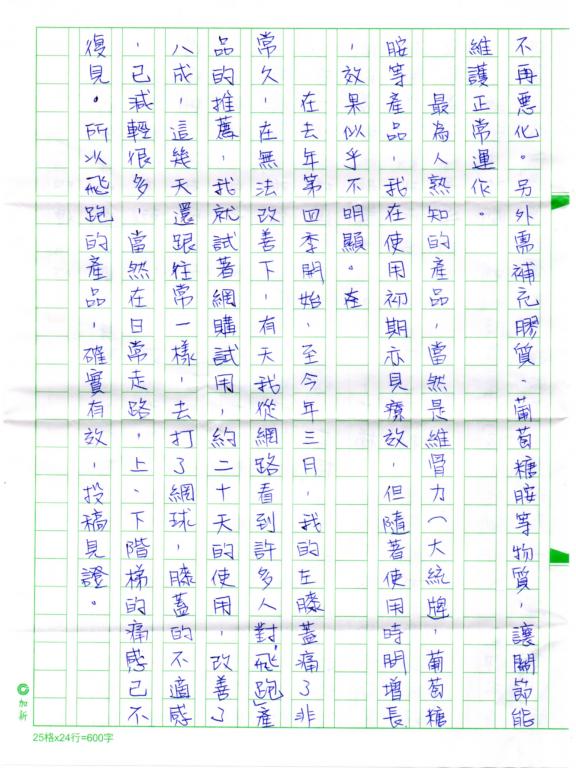 不再惡化。另外需補充膠質、葡萄糖胺等物質，讓關節能
維護正常運作。
最為人熟知的產品，當然是維骨力（大統牌，葡萄糖
胺等產品，我在使用初期亦見療效，但隨著使用時間增長
，效果似乎不明顯。在
在去年第四季開始，至今年三月，我的左膝蓋痛了非
常久，在無法改善下，有天我從網路看到許多人對「飛跑」產
品的推薦，我就試著網購試用，約二十天的使用，改善了
八成，這幾天還跟往常一樣，去打了網球，膝蓋的不適感
，已減輕很多，當然在日常走路，上、下階梯的痛感已不
復見。所以飛跑的產品，確實有效，投稿見證。
加新
25格x24行=600字